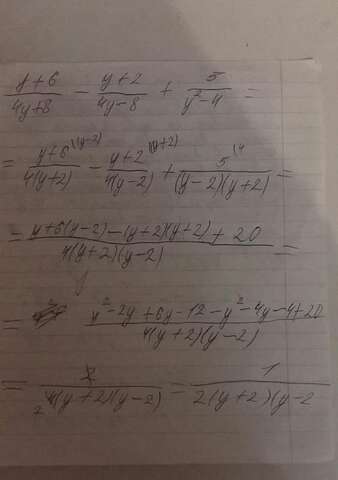 y+6/4y+8 - y+2/4y-8 + 5/y²-4 =
= y+6 |(y-2)/4(y+2) - y+2 |(y+2)/4(y-2) + 5 |4/(y-2)(y+2) =
- y+6(y-2)-(y+2)(y+2)+20/4(y+2)(y-2) =
= y²-2y+6y-12-y²-4y-4+20/4(y+2)(y-2)
= 2/2 4(y+2)(y-2) = 1/2(y+2)(y-2